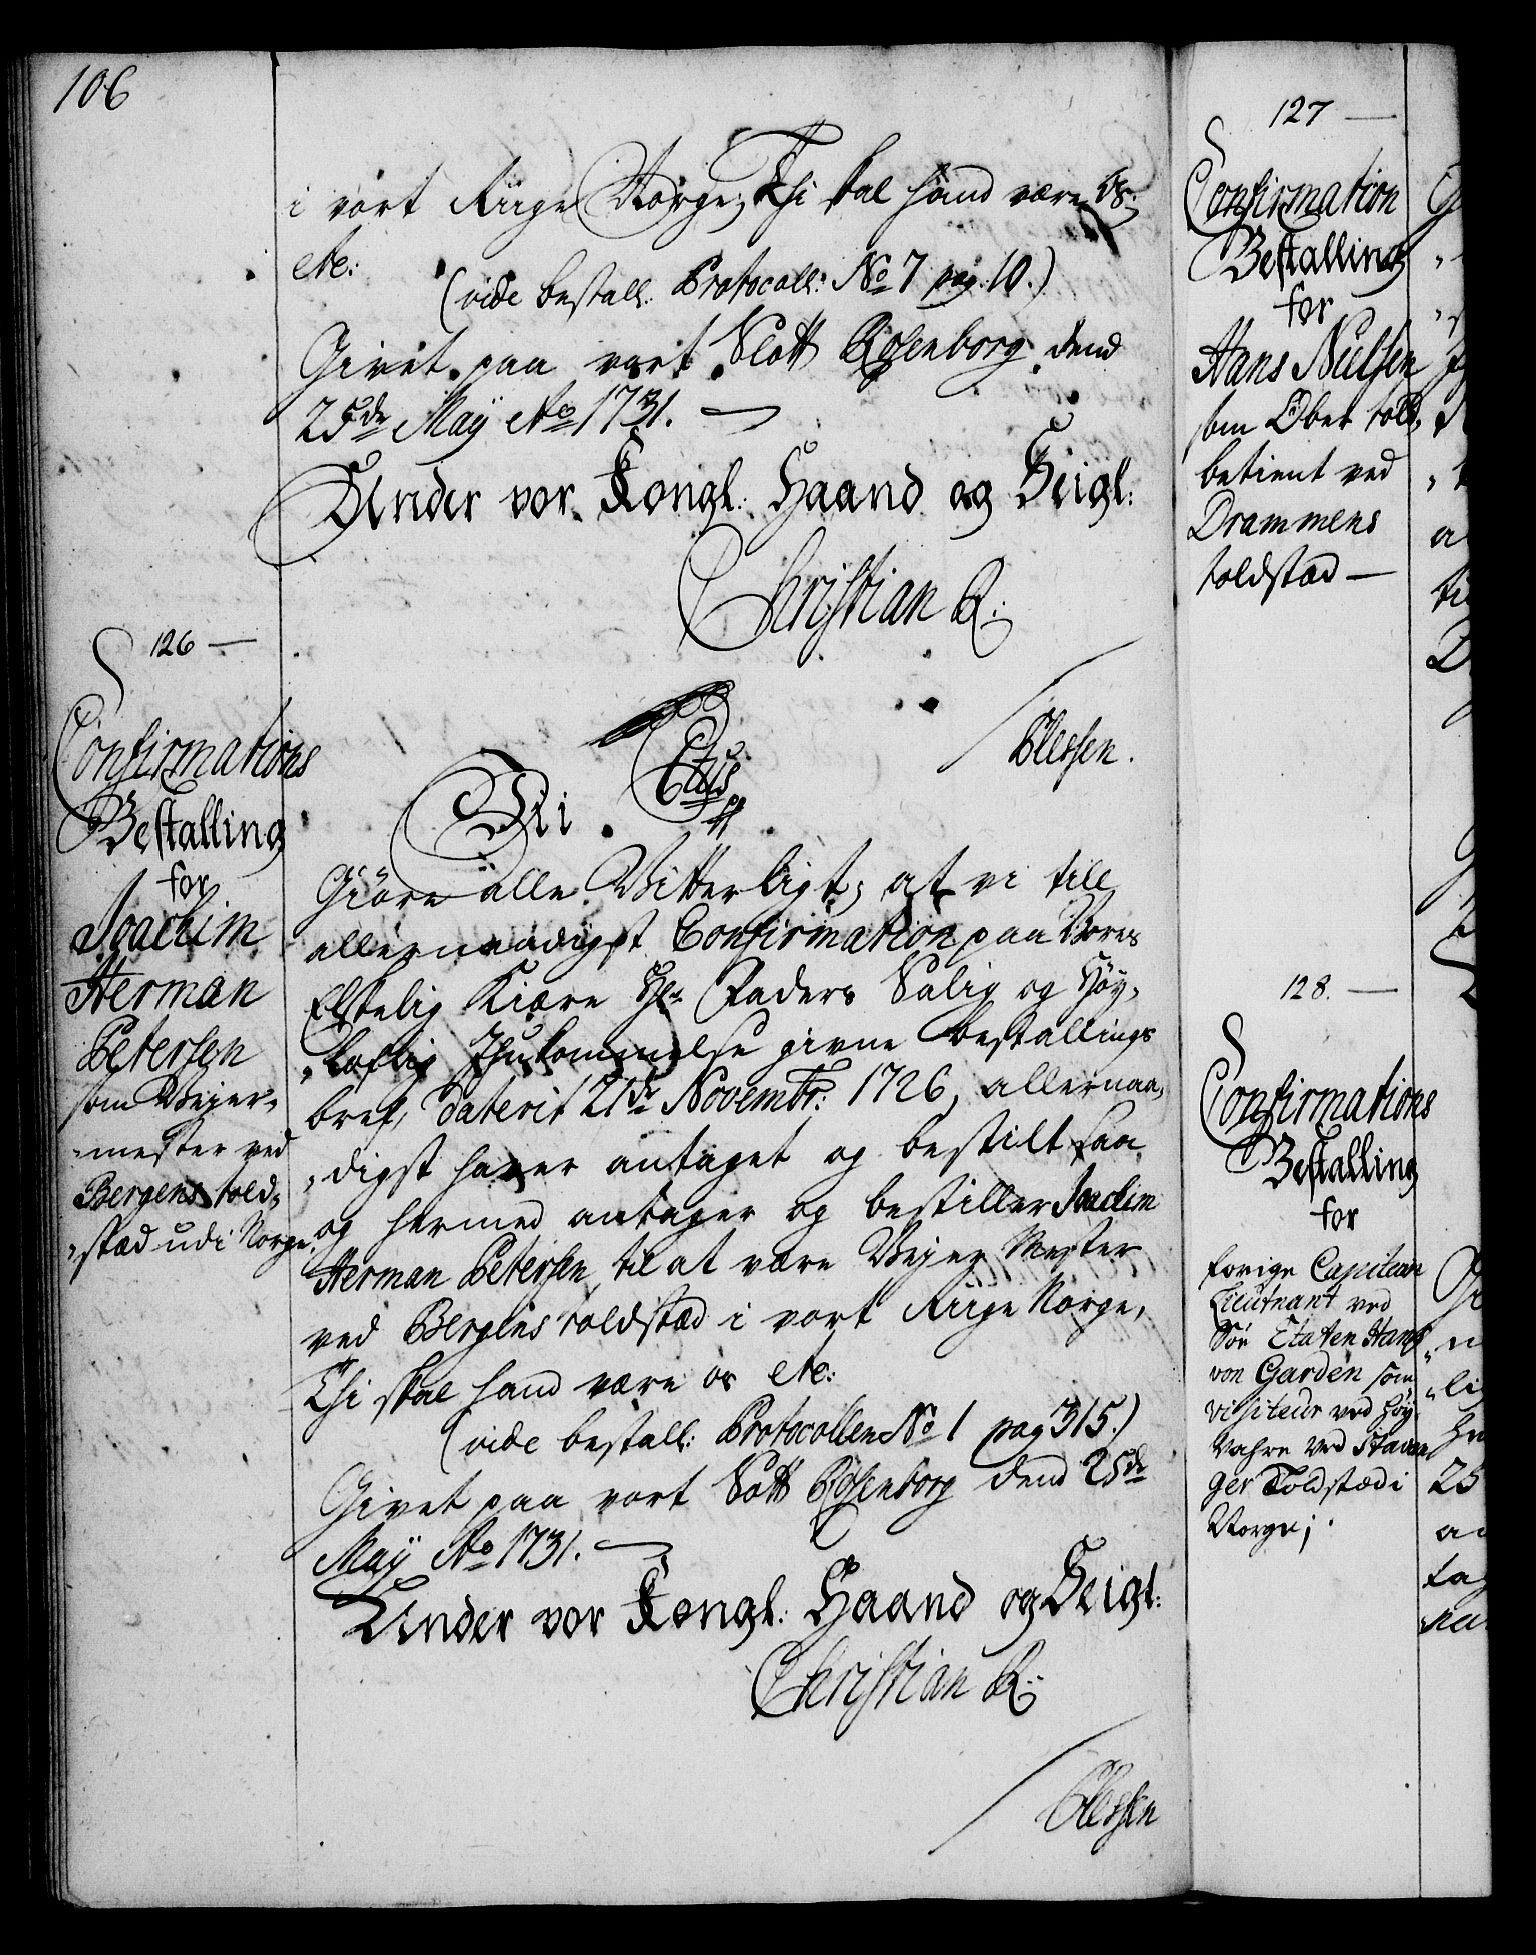 106
i vort Riige Norge; Thi skal hand være Os
etc:
(vide bestall: Protocoll: No 7 pag. 10.)
Givet paa vort Slott Rosenborg dend
25de Maÿ Ao 1731.
Under vor Kongl: Haand og Seigl:
Christian R:
Clessen.
126
Confirmations
Bestalling
for
Joachim
Herman
Petersen
som Veyer-
-mester ved
Bergens told-
-stæd udi Norge.
Vi
Ctus
Giøre alle Vitterligt; at vi till
allernaadigst Confirmation paa Vores
Elskelig Kiære Hr Faders Salig og Høy-
-loflig Ihukommelse givne bestallings
bref, daterit 21de Novembr: 1726, allernaa-
-digst haver antaget og bestilt saa
og hermed antager og bestiller Joachim
Herman Petersen, til at være Veyer Mester
ved Bergens toldstæd i vort Riige Norge,
Thi skal hand være os etc:
(vide bestall: Protocollen No 1 pag 315.)
Givet paa vort Slott Rosenborg dend 25de
Maÿ Ao 1731.
Under vor Kongl: Haand og Seigl:
Christian R:
Clessen
127
Confirmation
Bestalling
for
Hans Nielsen
som Ober told-
betient ved
Drammens
toldstæd
128.
Confirmations
Bestalling
for
forige Capitain
Lieutnant ved
Søe Etaten Hans
von Garden som
visiteur ved høy
Vahre ved Stavan
ger Toldstæd i
Norge;